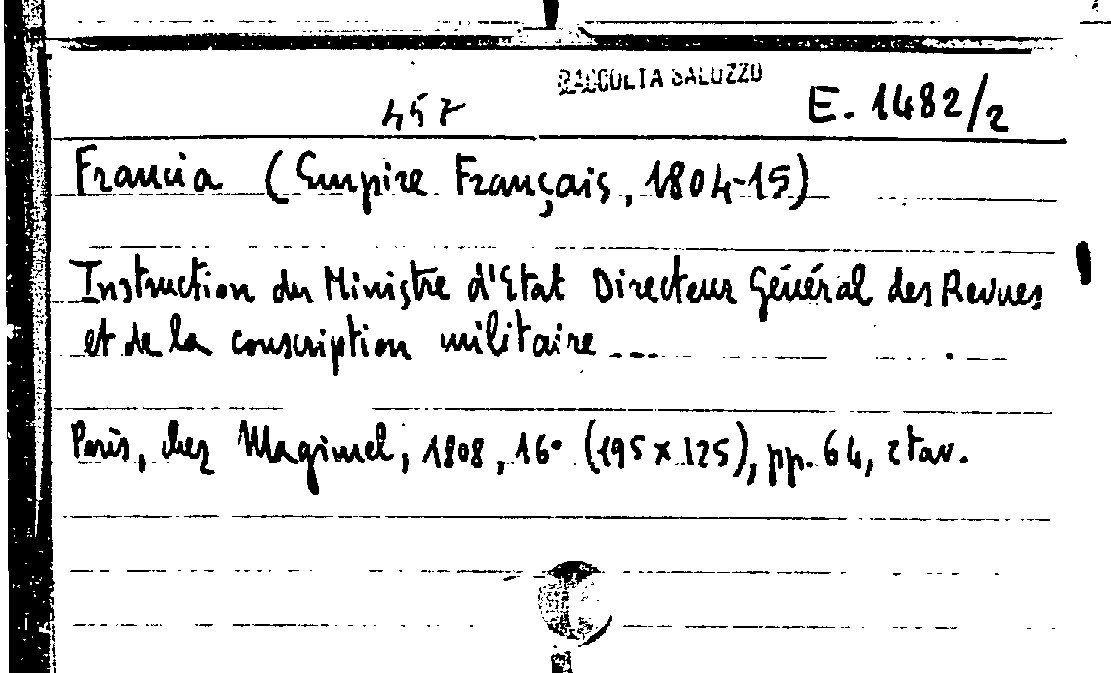 RACCOLTA SALUZZO
457 E. 1482/2
Francia (Empire Français, 1804-15)
Instruction du Ministre d'Etat Directeur Général des Revues
et de la conscription militaire ....
Paris, chez Magimel, 1808, 16° (195 x 125), pp. 64, 2 tav.